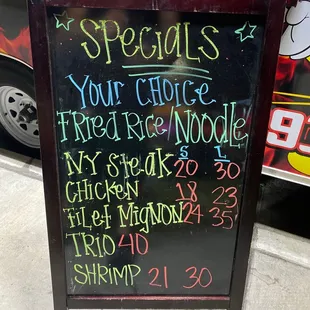 SPECIALS
YOUR CHOICE
FRIED RICE/NOODLE
S L
NY STEAK 20 30
CHICKEN 18 23
FILET MIGNON 24 35
TRIO 40
SHRIMP 21 30
93